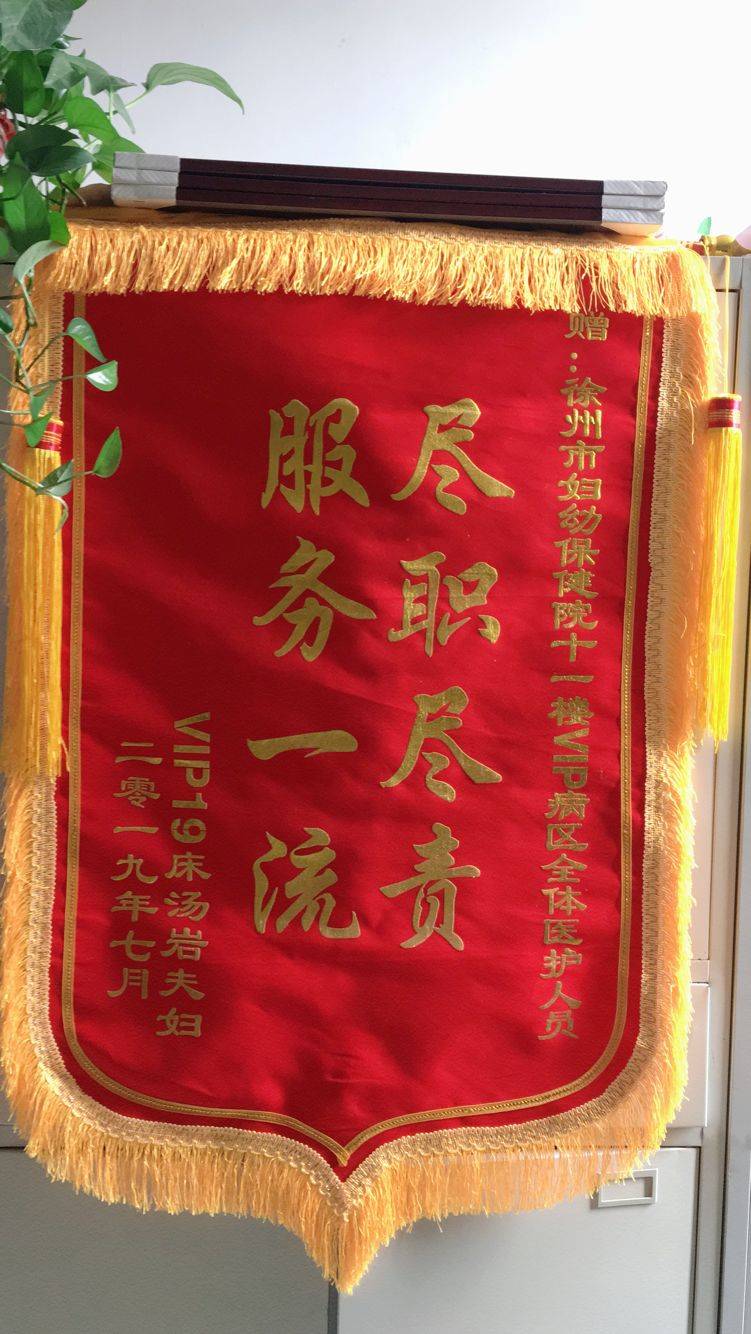 赠:徐州市妇幼保健院十一楼VIP病区全体医护人员
尽职尽责
服务一流
VIP19床汤岩夫妇
二零一九年七月